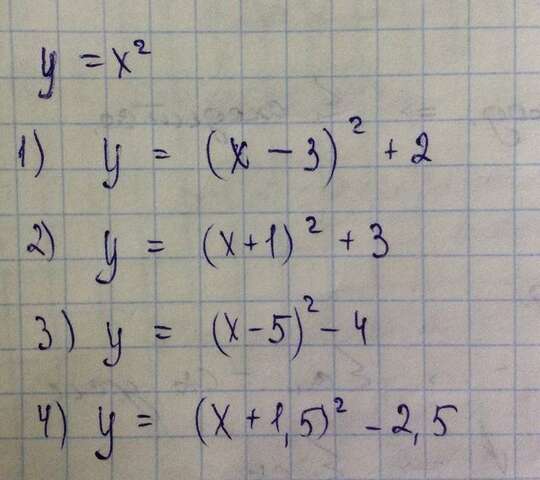 y = x²
1) y = (x - 3)² + 2
2) y = (x + 1)² + 3
3) y = (x - 5)² - 4
4) y = (x + 1,5)² - 2,5